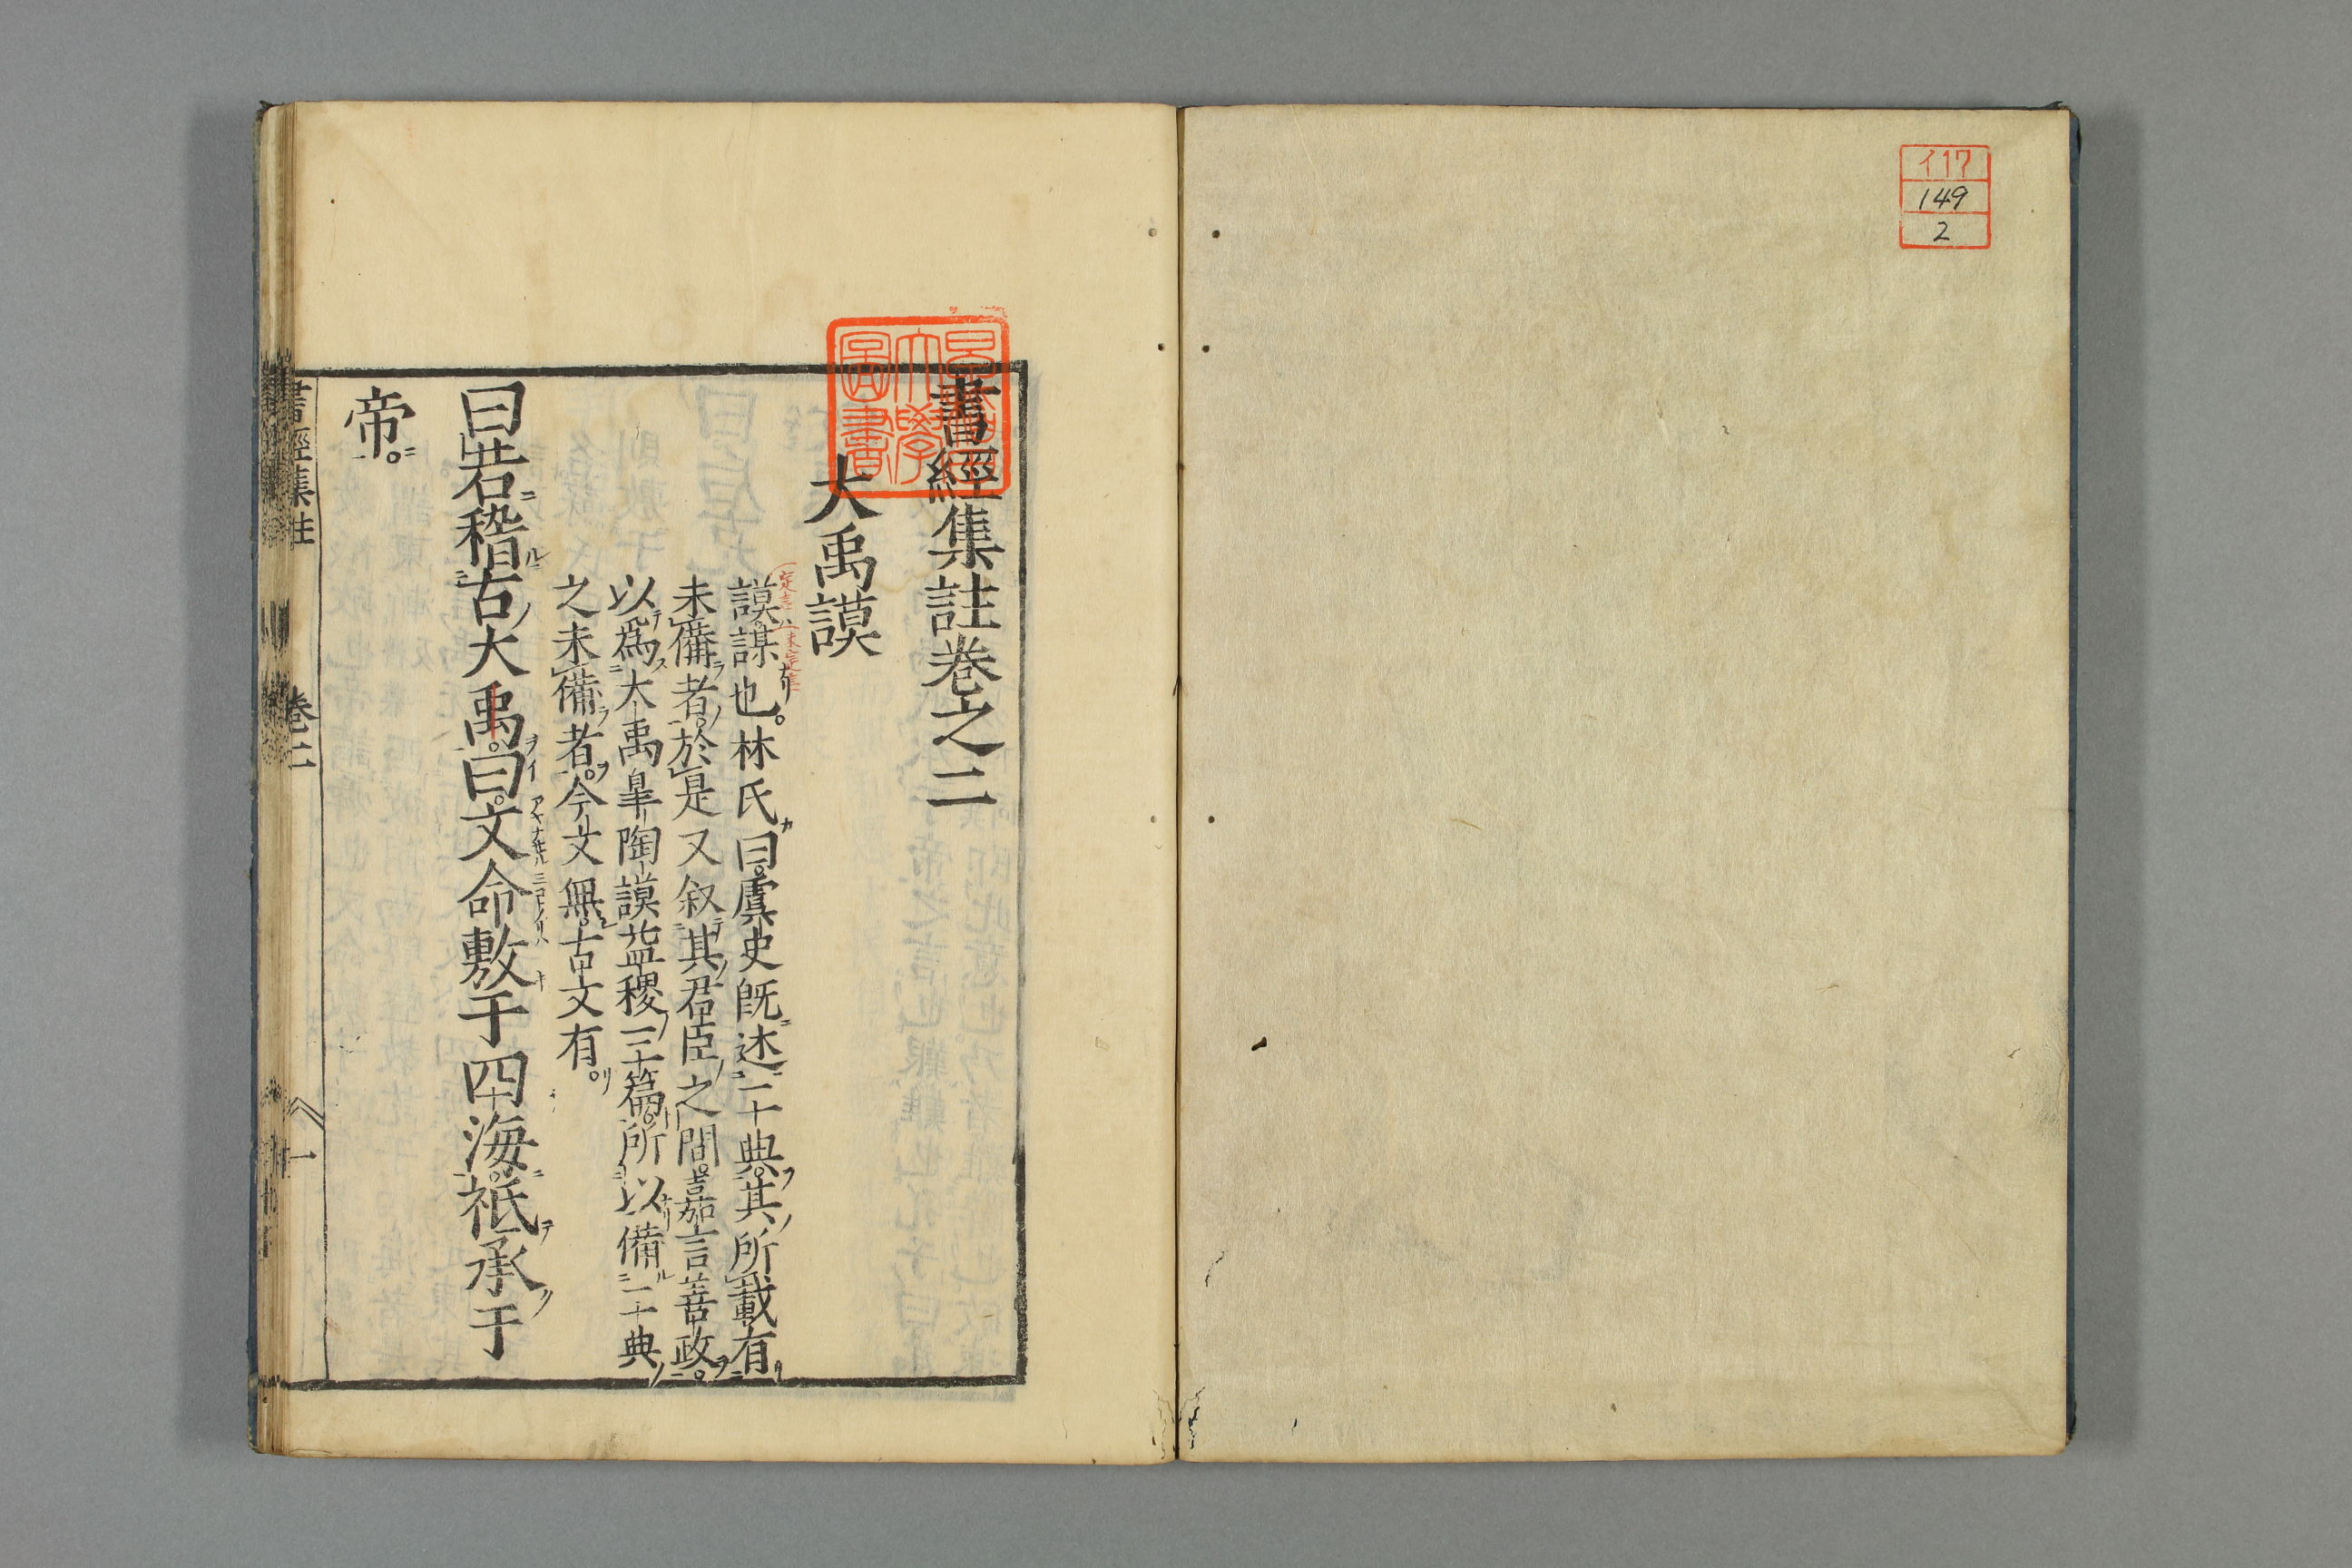 イ17
149
2
書經集註卷之二
大禹謨
謨謀也林氏曰虞史既述二典其所載有
未備者於是又叙其君臣之間嘉言善政
以爲大禹皐陶謨益稷三篇所以備二典
之未備者今文無古文有
曰若稽古大禹曰文命敷于四海祗承于
帝
書經集註
卷二
一